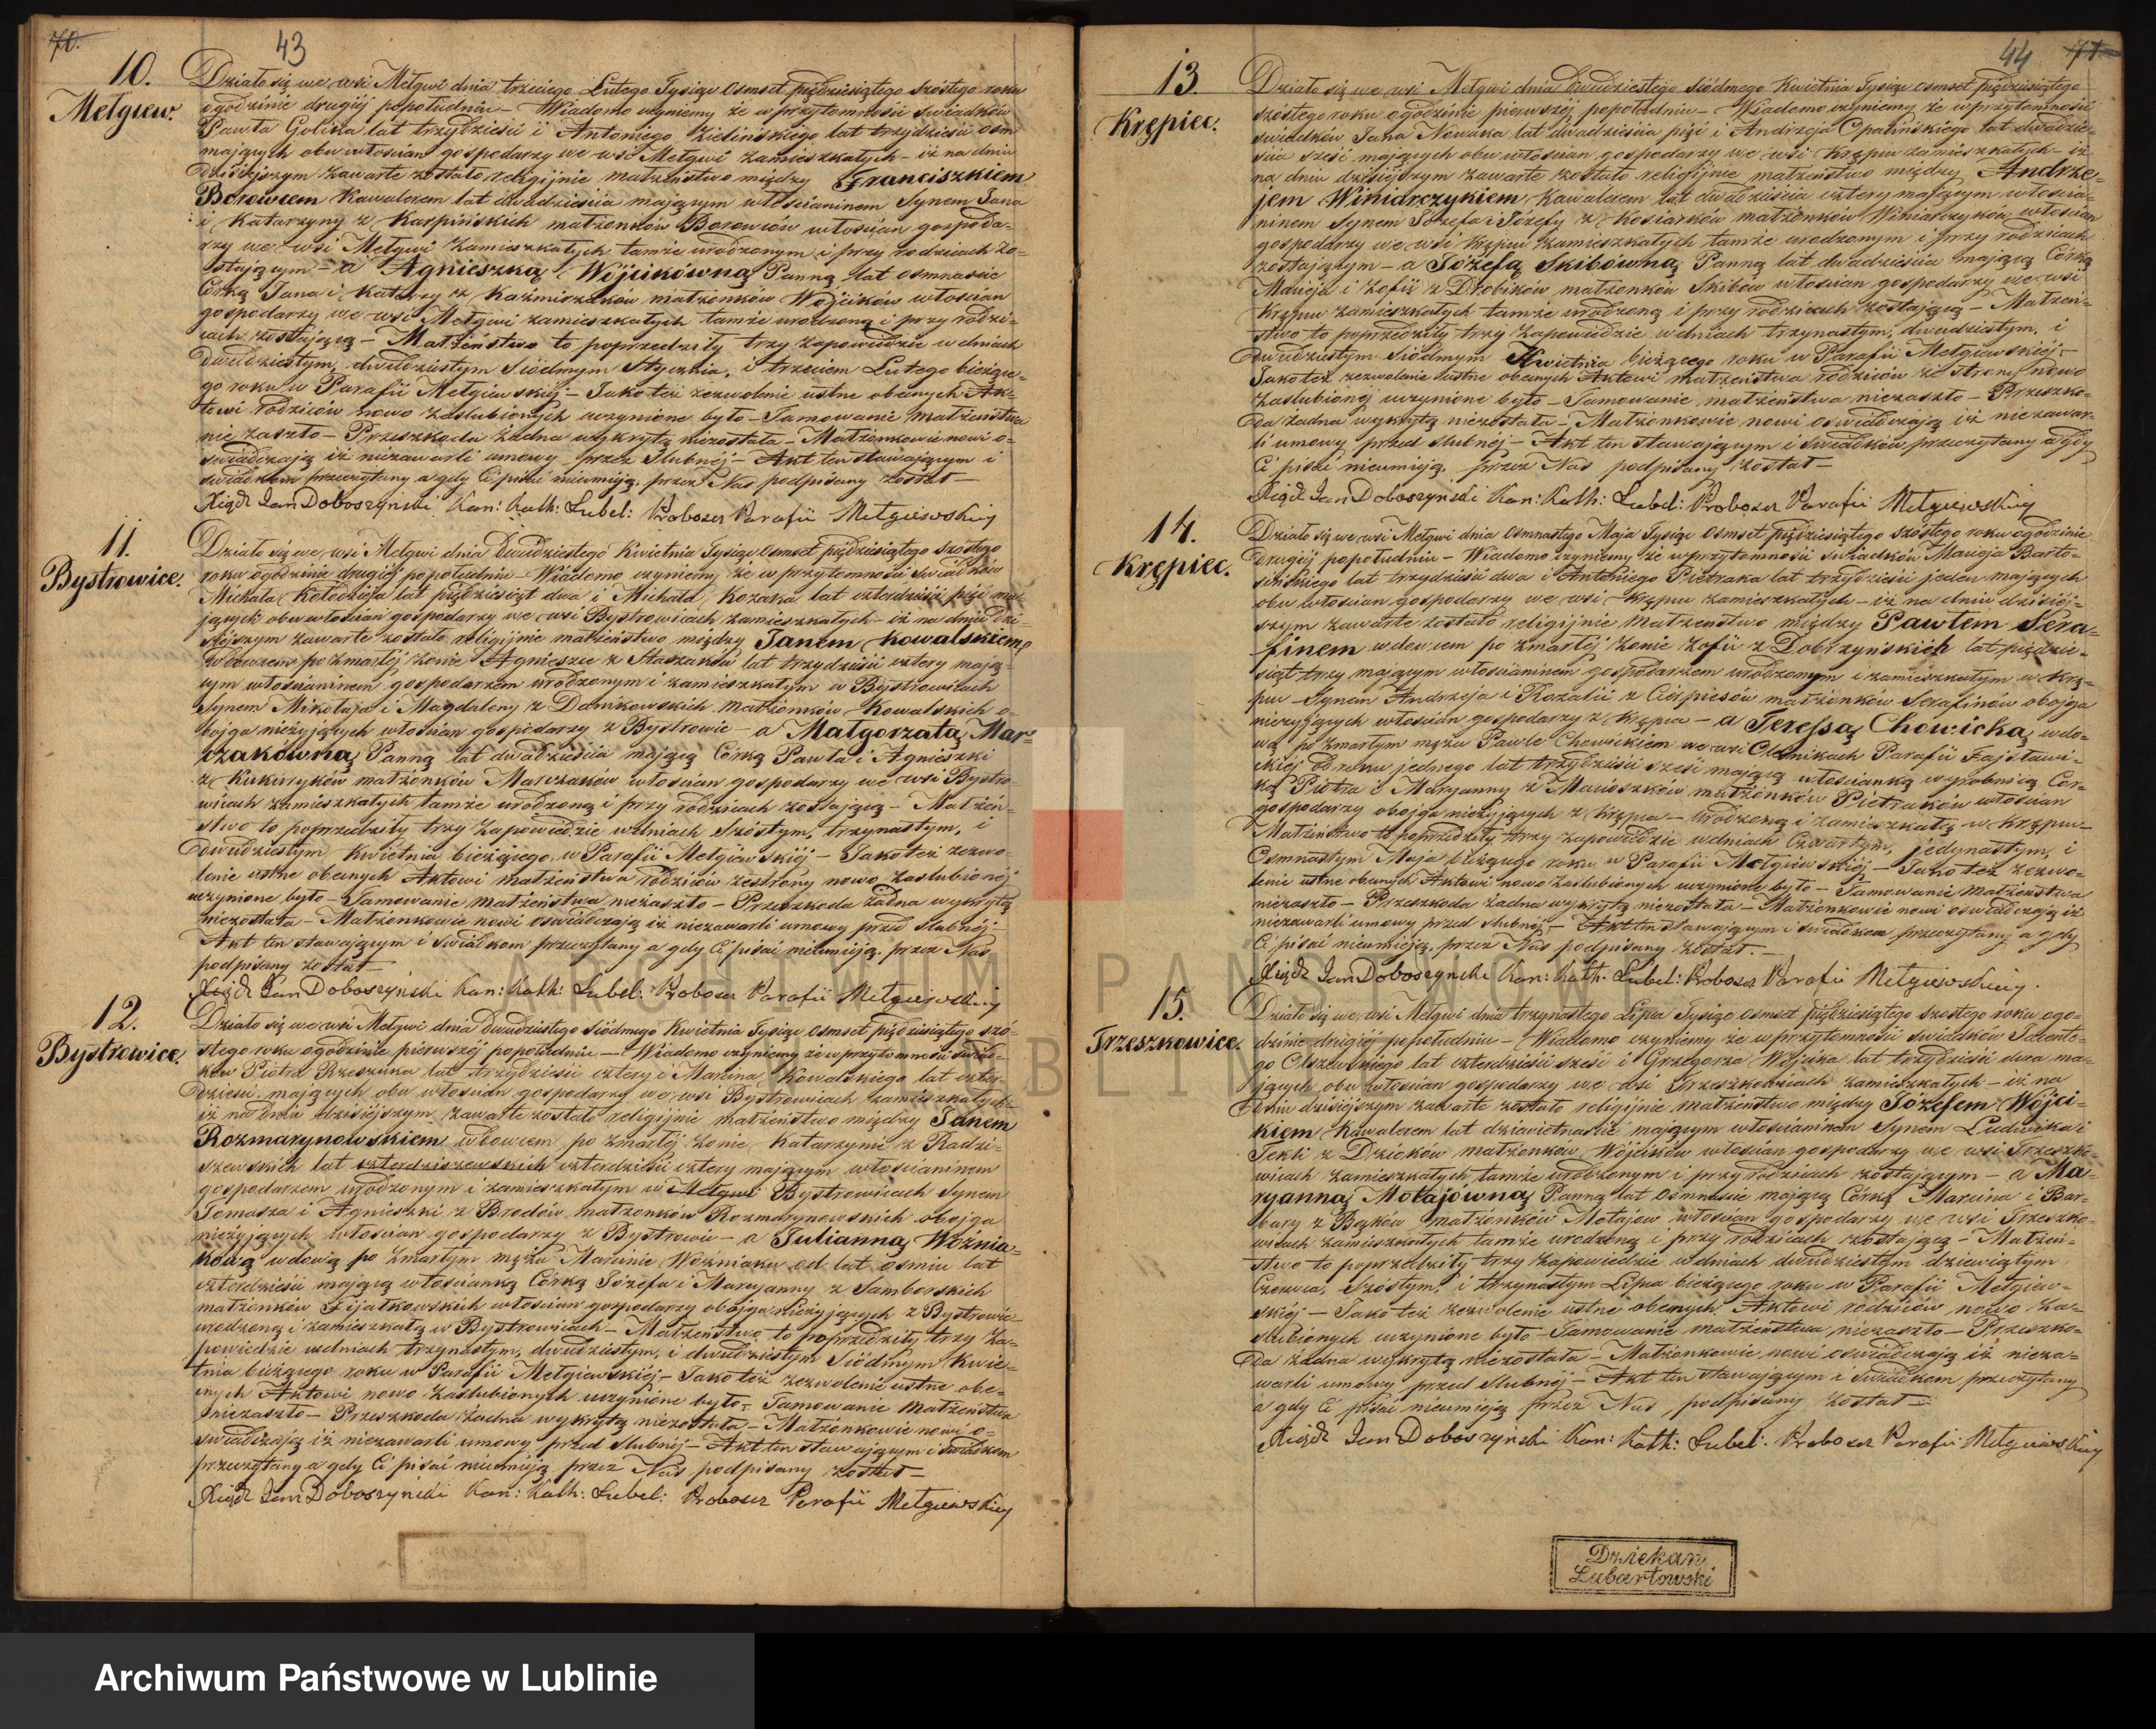 70.
43
10.
Mełgiew.
Działo się we wsi Mełgwi dnia trzeciego Lutego Tysiąc Osmset pięćdziesiątego szóstego roku
o godzinie drugiej popołudniu – Wiadomo czyniemy że w przytomności świadków
Pawła Golisza lat trzydzieści i Antoniego Zielińskiego lat trzydzieści osm
mających obu włościan gospodarzy we wsi Mełgwi zamieszkałych – iż na dniu
dzisiejszym zawarte zostało religijnie małżeństwo między Franciszkiem
Borowcem Kawalerem lat dwadzieścia mającym włościaninem Synem Jana
i Katarzyny z Karpińskich małżonków Borowców włościan gospoda-
rzy we wsi Mełgwi zamieszkałych tamże urodzonym i przy rodzicach zo-
stającym – a Agnieszką Wójcikówną Panną lat osmnaście
Córką Jana i Katarzy z Kazmirzaków małżonków Wójcików włościan
gospodarzy we wsi Mełgwi zamieszkałych tamże urodzoną i przy rodzi-
cach zostającą – Małżeństwo to poprzedziły trzy zapowiedzie w dniach
dwudziestym, dwudziestym Siódmym Stycznia, i trzecim Lutego bieżące-
go roku w Parafii Mełgiewskiej – Jako też zezwolenie ustne obecnych Ak-
towi rodziców nowo zaślubionych uczynione było – Tamowanie małżeństwa
nie zaszło – Przeszkoda żadna wykrytą niezostała – Małżonkowie nowi o-
świadczają iż niezawarli umowy przed Slubnéj – Akt ten stawającym i
świadkom przeczytany a gdy Ci pisać nieumieją, przez Nas podpisany został –
Xiądz Jan Doboszyński Kan: Kath: Lubel: Proboszcz Parafii Mełgiewskiey
11.
Bystrowice.
Działo się we wsi Mełgwi dnia Dwudziestego Kwietnia Tysiąc Osmset pięćdziesiątego szóstego
roku o godzinie drugiej popołudniu – Wiadomo czyniemy że w przytomności świadków
Michała Kołodzieja lat pięćdziesiąt dwa i Michała Kozaka lat czterdzieści pięć ma-
jących obu włościan gospodarzy we wsi Bystrowicach zamieszkałych – iż na dniu dzi-
siejszym zawarte zostało religijnie małżeństwo między Janem Kowalskiem
Wdowcem po zmarłej żonie Agnieszce z Staszaków lat trzydzieści cztery mają-
cym włościaninem gospodarzem urodzonym i zamieszkałym w Bystrowicach
Synem Mikołaja i Magdaleny z Dankowskich małżonków Kowalskich o-
bojga nieżyjących włościan gospodarzy z Bystrowic – a Małgorzatą Mar-
czakówną Panną lat dwadzieścia mającą Córką Pawła i Agnieszki
z Kukiryków małżonków Marczaków włościan gospodarzy we wsi Bystro-
wicach zamieszkałych tamże urodzoną i przy rodzicach zostającą – Małżeń-
stwo to poprzedziły trzy zapowiedzie w dniach Szóstym, trzynastym, i
dwudziestym Kwietnia bieżącego, w Parafii Mełgiewskiej – Jako też zezwo-
lenie ustne obecnych Aktowi małżeństwa rodziców ze strony nowo zaślubionej
uczynione było – Tamowanie małżeństwa niezaszło – Przeszkoda żadna wykrytą
niezostała – Małżonkowie nowi oświadczają iż niezawarli umowy przed slubnéj –
Akt ten stawającym i świadkom przeczytany a gdy Ci pisać nieumieją, przez Nas
podpisany został –
Xiądz Jan Doboszyński Kan: Kath: Lubel: Proboszcz Parafii Mełgiewskiey
12.
Bystrowice.
Działo się we wsi Mełgwi dnia Dwudziestego Siódmego Kwietnia Tysiąc Osmset pięćdziesiątego szó-
stego roku o godzinie pierwszej popołudniu – Wiadomo czyniemy że w przytomności świad-
ków Piotra Rzeszuka lat trzydzieści cztery i Marcina Kowalskiego lat czter-
dzieści mających obu włościan gospodarzy we wsi Bystrowicach zamieszkałych –
iż na dniu dzisiejszym zawarte zostało religijnie małżeństwo między Janem
Rozmarynowskiem wdowcem po zmarłej żonie Katarzynie z Radzi-
szewskich lat czterdziszewskich czterdzieści cztery mającym włościaninem
gospodarzem urodzonym i zamieszkałym w Mełgwi Bystrowicach Synem
Tomasza i Agnieszki z Brodów małżonków Rozmarynowskich obojga
nieżyjących włościan gospodarzy z Bystrowic – a Julianną Woźnia-
kową wdową po zmarłym mężu Marcinie Woźniaku od lat osmiu lat
czterdzieści mającą włościanką Córką Józefa i Maryanny z Samborskich
małżonków Fijałkowskich włościan gospodarzy obojga nieżyjących z Bystrowic
urodzoną i zamieszkałą w Bystrowicach – Małżeństwo to poprzedziły trzy za-
powiedzie w dniach trzynastym, dwudziestym, i dwudziestym Siódmym Kwie-
tnia bieżącego roku w Parafii Mełgiewskiej – Jako też zezwolenie ustne obe-
cnych Aktowi nowo zaślubionych uczynione było – Tamowanie małżeństwa
niezaszło – Przeszkoda żadna wykrytą niezostała – Małżonkowie nowi o-
świadczają iż niezawarli umowy przed slubnéj – Akt ten stawającym i świadkom
przeczytany a gdy Ci pisać nieumieją przez Nas podpisany został –
Xiądz Jan Doboszyński Kan: Kath: Lubel: Proboszcz Parafii Mełgiewskiey
44
71
13.
Krępiec.
Działo się we wsi Mełgwi dnia Dwudziestego Siódmego Kwietnia Tysiąc osmset pięćdziesiątego
szóstego roku o godzinie pierwszej popołudniu – Wiadomo czyniemy że w przytomności
świadków Jana Nowaka lat dwadzieścia pięć i Andrzeja Opalińskiego lat dwadzie-
ścia sześć mających obu włościan gospodarzy we wsi Krępcu zamieszkałych – iż
na dniu dzisiejszym zawarte zostało religijnie małżeństwo między Andrze-
jem Winiarczykiem Kawalerem lat dwadzieścia cztery mającym włościa-
ninem Synem Józefa i Józefy z Kosiarków małżonków Winiarczyków włościan
gospodarzy we wsi Krępcu zamieszkałych tamże urodzonym i przy rodzicach
zostającym – a Józefą Skibówną Panną lat dwadzieścia mającą Córką
Macieja i Zofii z Drobików małżonków Skibów włościan gospodarzy we wsi
Krępcu zamieszkałych tamże urodzoną i przy rodzicach zostającą – Małżeń-
stwo to poprzedziły trzy zapowiedzie w dniach trzynastym, dwudziestym, i
dwudziestym Siódmym Kwietnia bieżącego roku w Parafii Mełgiewskiej –
Jako też zezwolenie ustne obecnych Aktowi małżeństwa rodziców ze strony nowo
zaślubionej uczynione było – Tamowanie małżeństwa niezaszło – Przeszko-
da żadna wykrytą niezostała – Małżonkowie nowi oświadczają iż niezawar-
li umowy przed slubnéj – Akt ten stawającym i świadkom przeczytany a gdy
Ci pisać nieumieją, przez Nas podpisany został –
Xiądz Jan Doboszyński Kan: Kath: Lubel: Proboszcz Parafii Mełgiewskiey
14.
Krępiec.
Działo się we wsi Mełgwi dnia Osmnastego Maja Tysiąc Osmset pięćdziesiątego szóstego roku o godzinie
drugiej popołudniu – Wiadomo czyniemy że w przytomności świadków Macieja Barto-
sińskiego lat trzydzieści dwa i Antoniego Pietraka lat trzydzieści jeden mających
obu włościan gospodarzy we wsi Krępcu zamieszkałych – iż na dniu dzisiej-
szym zawarte zostało religijnie małżeństwo między Pawłem Sera-
finem wdowcem po zmarłej żonie Zofii z Dobrzyńskich lat pięćdzie-
siąt trzy mającym włościaninem gospodarzem urodzonym i zamieszkałym w Krę-
pcu Synem Andrzeja i Rozalii z Cierpiesów małżonków Serafinów obojga
nieżyjących włościan gospodarzy z Krępca – a Teressą Chowicką wdo-
wą po zmarłym mężu Pawle Chowickiem we wsi Ciemikach Parafii Fajsławi-
ckiej od roku jednego lat trzydzieści sześć mającą włościanką wyrobnicą Cór-
ką Piotra i Maryanny z Marioszków małżonków Pietraków włościan
gospodarzy obojga nieżyjących z Krępca – urodzoną i zamieszkałą w Krępcu –
Małżeństwo to poprzedziły trzy zapowiedzie w dniach Czwartym, jedynastym, i
Osmnastym Maja bieżącego roku w Parafii Mełgiewskiej – Jako też zezwo-
lenie ustne obecnych Aktowi nowo zaślubionych uczynione było – Tamowanie małżeństwa
niezaszło – Przeszkoda żadna wykrytą niezostała – Małżonkowie nowi oświadczają iż
niezawarli umowy przed slubnéj – Akt ten stawającym i świadkom przeczytany a gdy
Ci pisać nieumieją, przez Nas podpisany został. –
Xiądz Jan Doboszyński Kan: Kath: Lubel: Proboszcz Parafii Mełgiewskiey.
15.
Trzeszkowice.
Działo się we wsi Mełgwi dnia trzynastego Lipca Tysiąc osmset pięćdziesiątego szóstego roku o go-
dzinie drugiej popołudniu – Wiadomo czyniemy że w przytomności świadków Jacente-
go Olszewskiego lat czterdzieści sześć i Grzegorza Wójcika lat trzydzieści dwa ma-
jących obu włościan gospodarzy we wsi Trzeszkowicach zamieszkałych – iż na
dniu dzisiejszym zawarte zostało religijnie małżeństwo między Józefem Wójci-
kiem Kawalerem lat dziewietnaście mającym włościaninem Synem Ludwika i
Tekli z Dzioków małżonków Wójcików włościan gospodarzy we wsi Trzeszko-
wicach zamieszkałych tamże urodzonym i przy rodzicach zostającym – a Ma-
ryanną Mołajówną Panną lat Osmnaście mającą Córką Marcina i Bar-
bary z Bąków małżonków Mołajów włościan gospodarzy we wsi Trzeszko-
wicach zamieszkałych tamże urodzoną i przy rodzicach zostającą – Małżeń-
stwo to poprzedziły trzy zapowiedzie w dniach dwudziestym dziewiątym
Czerwca, Szóstym, i trzynastym Lipca bieżącego roku w Parafii Mełgiew-
skiej – Jako też zezwolenie ustne obecnych Aktowi rodziców nowo za-
ślubionych uczynione było – Tamowanie małżeństwa niezaszło – Przeszko-
da żadna wykrytą niezostała – Małżonkowie nowi oświadczają iż nieza-
warli umowy przed slubnéj – Akt ten stawającym i świadkom przeczytany
a gdy Ci pisać nieumieją przez Nas, podpisany został –
Xiądz Jan Doboszyński Kan: Kath: Lubel: Proboszcz Parafii Mełgiewskiey
Dziekan
Lubartowski
ARCHIWUM PAŃSTWOWE
W LUBLINIE
Archiwum Państwowe w Lublinie